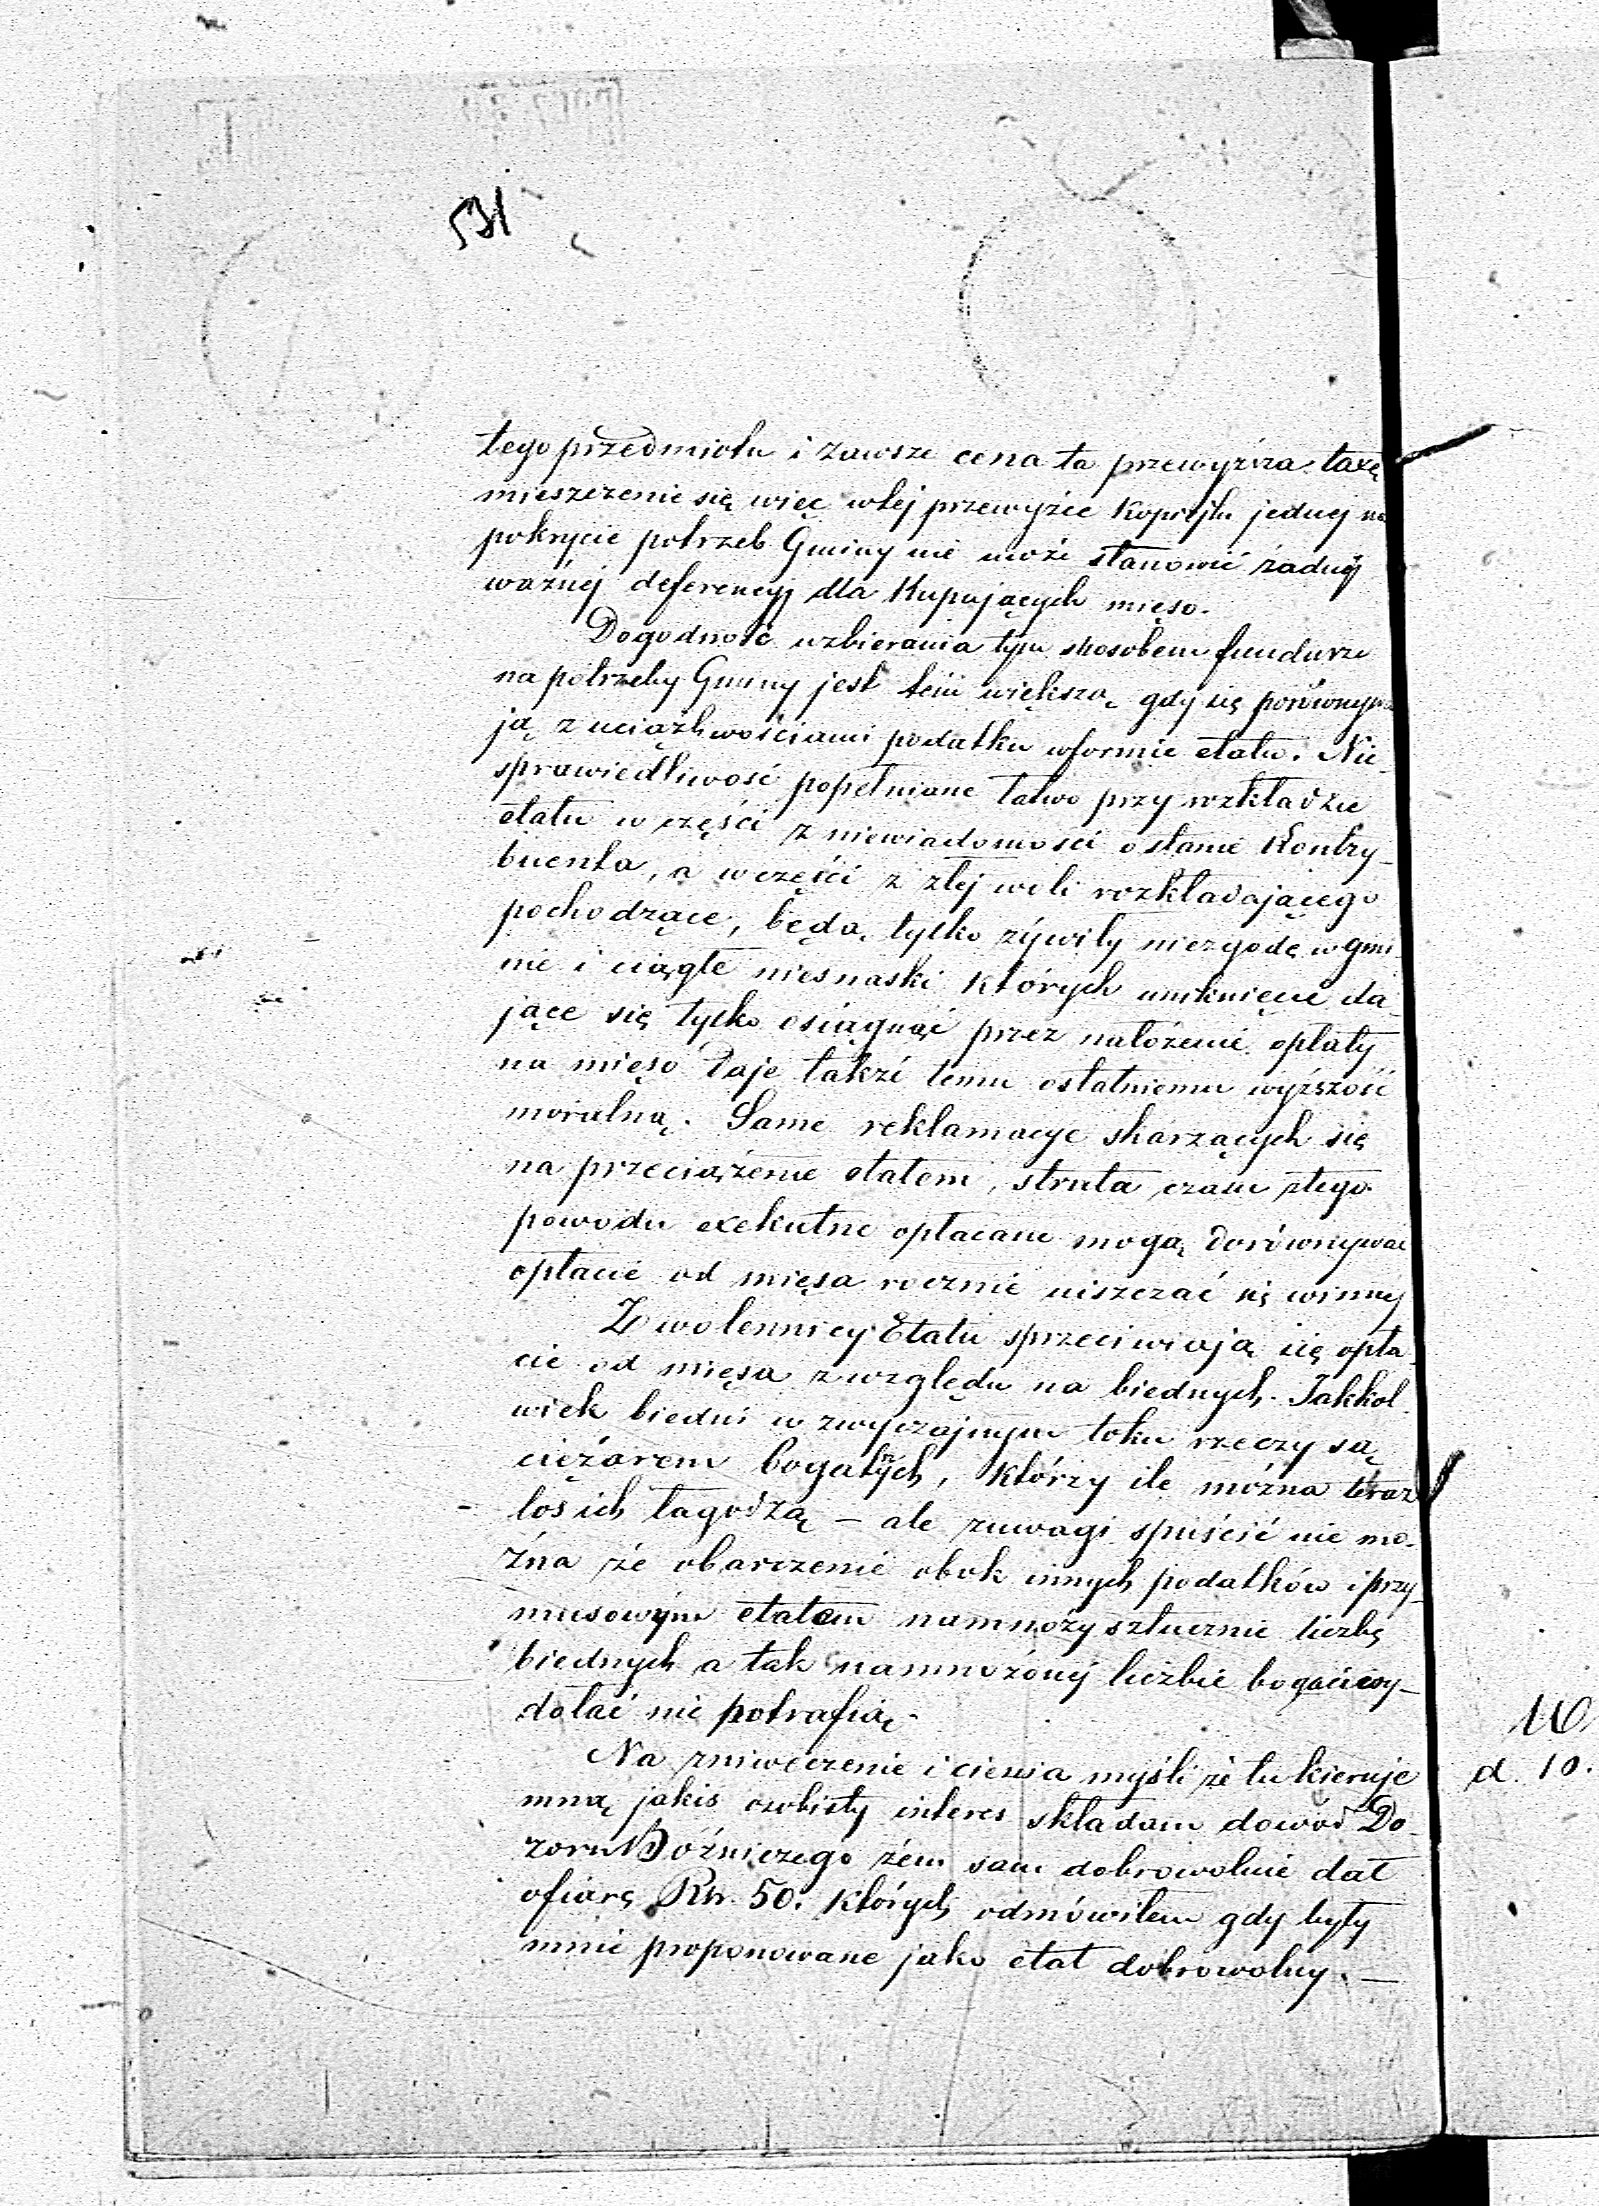 531
tego przedmiotu i zawsze cena ta przewyższa taxę
mieszczenie się więc wtej przewyżce Kopiejki jednej na
pokrycie potrzeb Gminy nie może stanowić żadnej
ważnej deferencyj dla Kupujących mięso.
Dogodność uzbierania tym sposobem funduszu
na potrzeby Gminy jest tem większą gdy się porównywa
ją z uciążliwościami podatku wformie etatu. Nie-
sprawiedliwość popełniane łatwo przy rozkładzie
etatu w części z niewiadomości ostanie Kontry-
buenta, a w części z złej woli rozkładającego
pochodzące, będą tylko żywiły niezgodę w gmi-
nie i ciągłe niesnaski których uniknięcie da-
jące się tylko osiągnąć przez nałożenie opłaty
na mięso daje także temu ostatniemu wyższość
moralną. Same reklamacye skarzących się
na przeciążenie etatem, strata czasu ztego
powodu exekutne opłacane mogą dorównywac
opłacie od mięsa rocznie uiszczać się winnej
Zwolennicy Etatu sprzeciwiają się opła-
cie od mięsa zwzględu na biednych. Jakkol-
wiek biedni w zwyczajnym toku rzeczy są
ciężarem bogatych, którzy ile można teraz
los ich łagodzą – ale zuwagi spuścić nie mo-
żna że obarczenie obok innych podatków i przy-
musowym etatem namnoży sztucznie liczbę
biednych a tak namnożonej liczbie bogaci wy-
dołać nie potrafią.
Na zniweczenie i cienia myśli że tu kieruje
mną jakis osobisty interes składam dowód Do-
zoru Bóżniczego żem sam dobrowolnie dał
ofiarę Rsr. 50. których odmówiłem gdy były
mnie proponowane jako etat dobrowolny. —
d. 10.